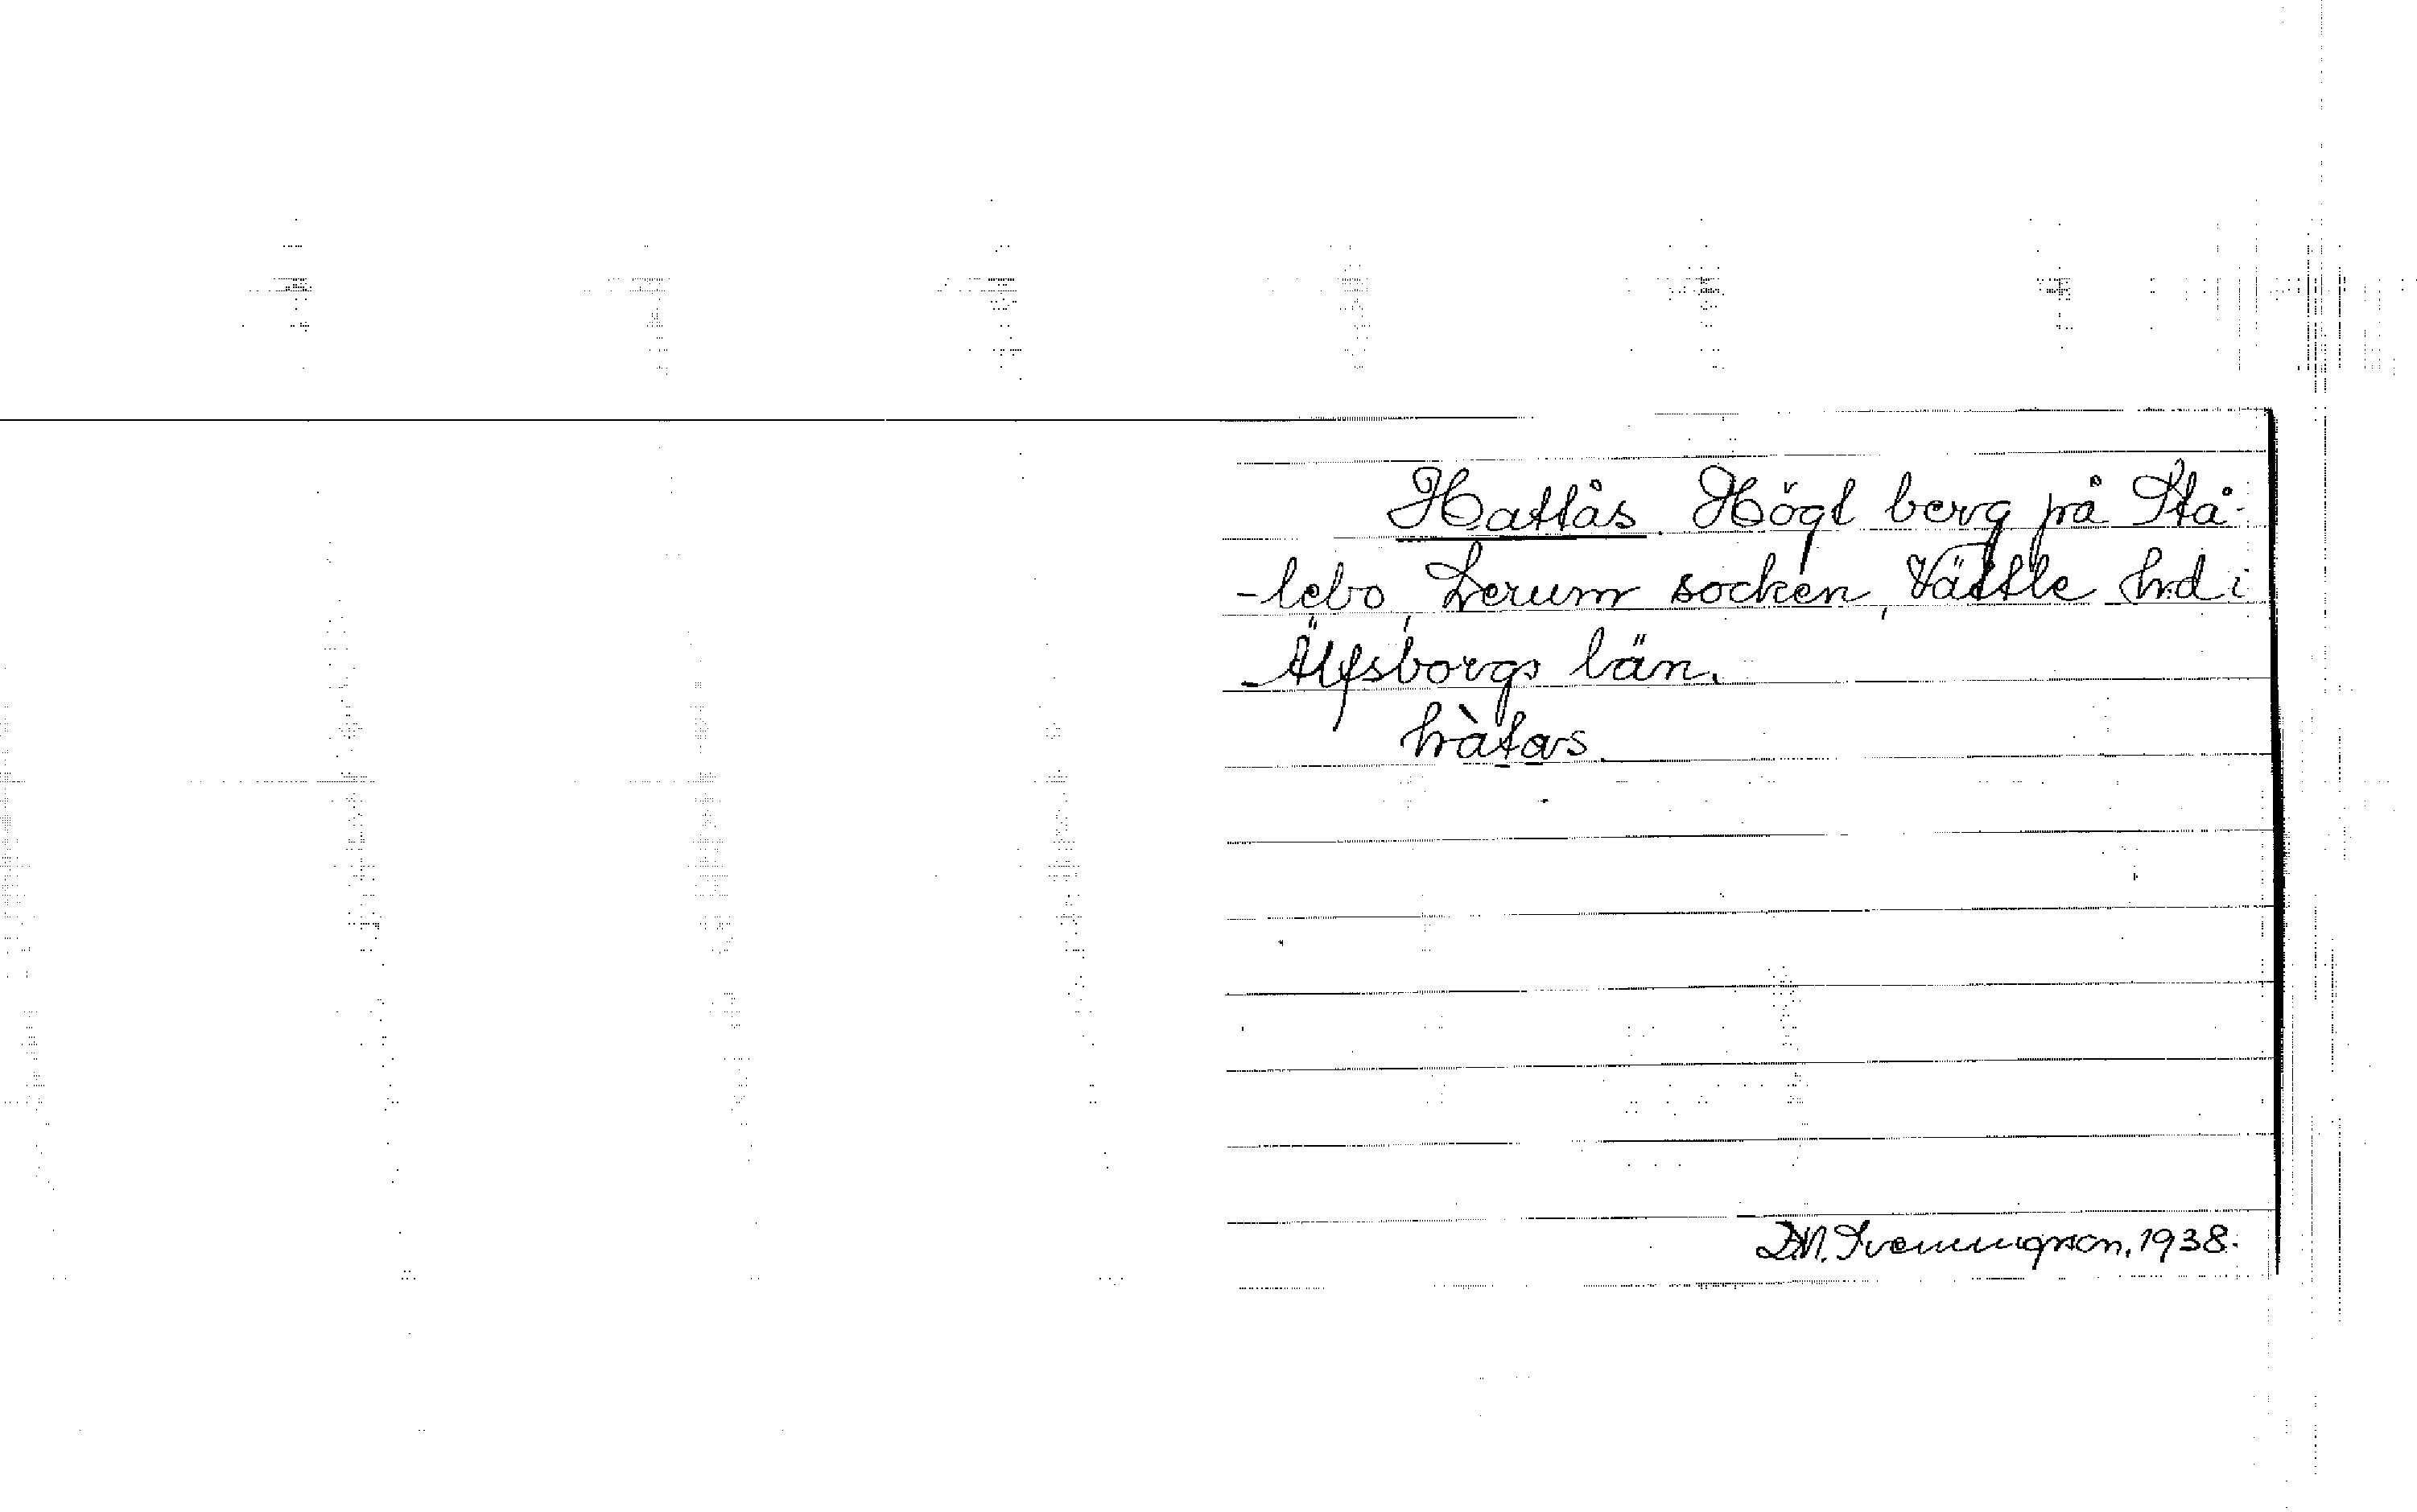 Hattås. Högt berg på Stå-
-lebo, Lerum socken, Vättle hrd i
Älfsborgs län.
hàtas
D.N. Svenningson, 1938.